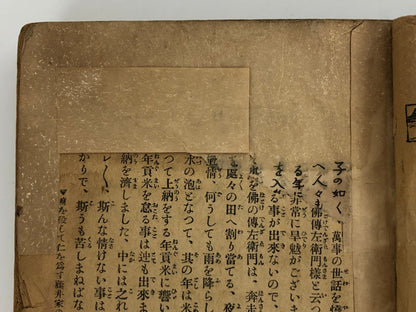 子の如く、萬事の世話を燒
へ人々も佛傳左衛門様と云つ
る年に非常に旱魃がございま
を入る事が出來ないので、
水を佛の傳左衛門は、奔走
處々の田へ割り當てる、夜
情、何うしても雨を降らし
水の泡となつて、其の年は米
つて上納をする年貢米に響い
年貢米を怠る事は辿も出來ま
納を濟しました、中には之れ
んな情けない事は
かりで、斯うも苦しまねばな